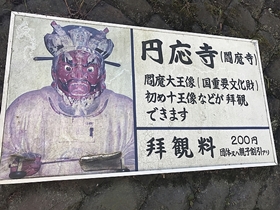 円応寺(閻魔寺)
閻魔大王像(国重要文化財)
初め十王像などが拝観
できます
拝観料 200円
団体又ハ親子割引アリ